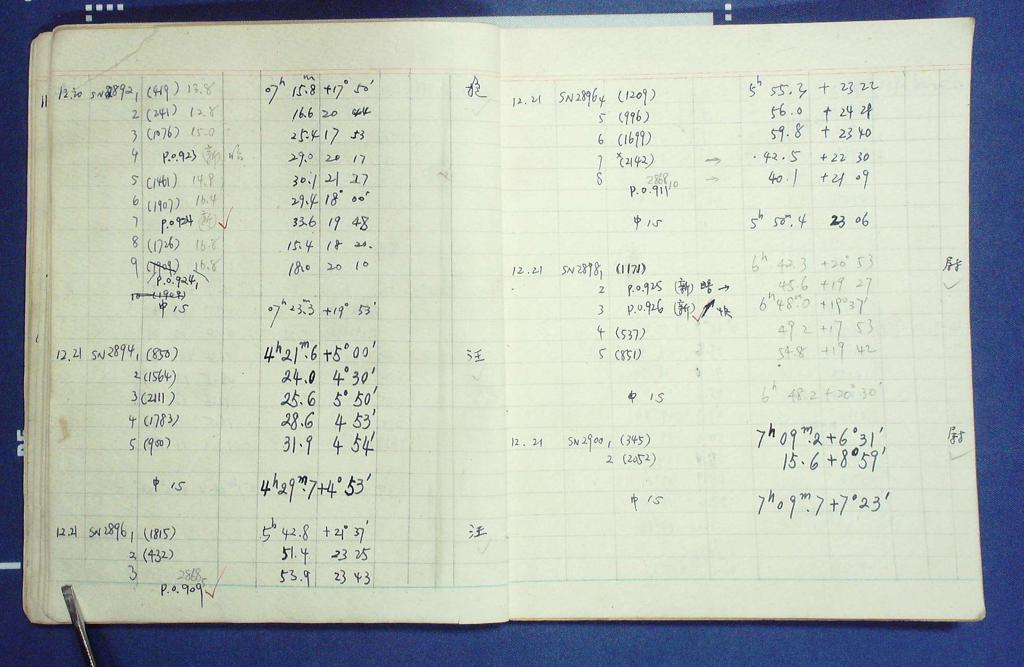 12.20 SN2892₁ (419) 13.8 07ʰ 15.8ᵐ +17° 50′
2 (241) 12.8 16.6 20 44
3 (1076) 15.0 25.4 17 53
4 P.O.923 (新) 暗 29.0 20 17
5 (1461) 14.9 30.1 21 27
6 (1907) 16.4 29.4 18° 00′
7 P.O.924 (新) ✓ 33.6 19 48
8 (1726) 16.8 15.4 18 20.
9 16.8 18.0 20 10
P.O.924₁
中心 07ʰ 23ᵐ.3 +19° 53′
12.21 SN2894₁ (850) 4ʰ 21ᵐ.6 +5° 00′ 汪
2 (1564) 24.0 4° 30′
3 (2111) 25.6 5° 50′
4 (1783) 28.6 4 53′
5 (900) 31.9 4 54′
中心 4ʰ 29ᵐ.7 +4° 53′
12.21 SN2896₁ (1815) 5ʰ 42.8 +21° 37′ 汪
2 (432) 51.4 23 25
3 2868₅ 53.9 23 43
P.O.909 ✓
12.21 SN2896₄ (1209) 5ʰ 55.3 + 23 22
5 (996) 56.0 + 24 28
6 (1699) 59.8 + 23 40
7 ˣ(2142) → 42.5 +22 30
8 2868₁₀ → 40.1 +21 09
P.O.911
中心 5ʰ 50ᵐ.4 23 06
12.21 SN2898₁ (1171) 6ʰ 42.3 +20° 53
2 P.O.925 (新) 暗 → 45.6 + 19 27
3 P.O.926 (新) ✓ 快 6ʰ 48ᵐ.0 +19° 37′
4 (537) 49 2 +17 53
5 (851) 54.8 +19 42
中心 6ʰ 48.2 +20° 30′
12.21 SN2900₁ (345) 7ʰ 09ᵐ.2 +6° 31′
2 (2052) 15.6 +8° 59′
中心 7ʰ 09ᵐ.7 +7° 23′